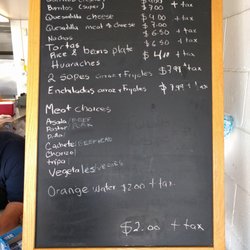 Burritos Super $7.00 + tax
Quesadilla cheese $4.00 + tax
Quesadilla meat & cheese $7.00 + tax
Nachos $6.50 + tax
Tortas $6.50 + tax
Rice & beans plate $4.00 + tax
Huaraches
2 sopes arroz y frijoles $7.99 + tax
Enchiladas arroz y frijoles $7.99 + tax
Meat choices
Asada/BEEF
Pastor/PORK
Pollo/
Cachete/BEEFHEAD
Chorizo/
tripa/
Vegetales/VEGGIES
Orange water $2.00 + tax
$2.00 + tax